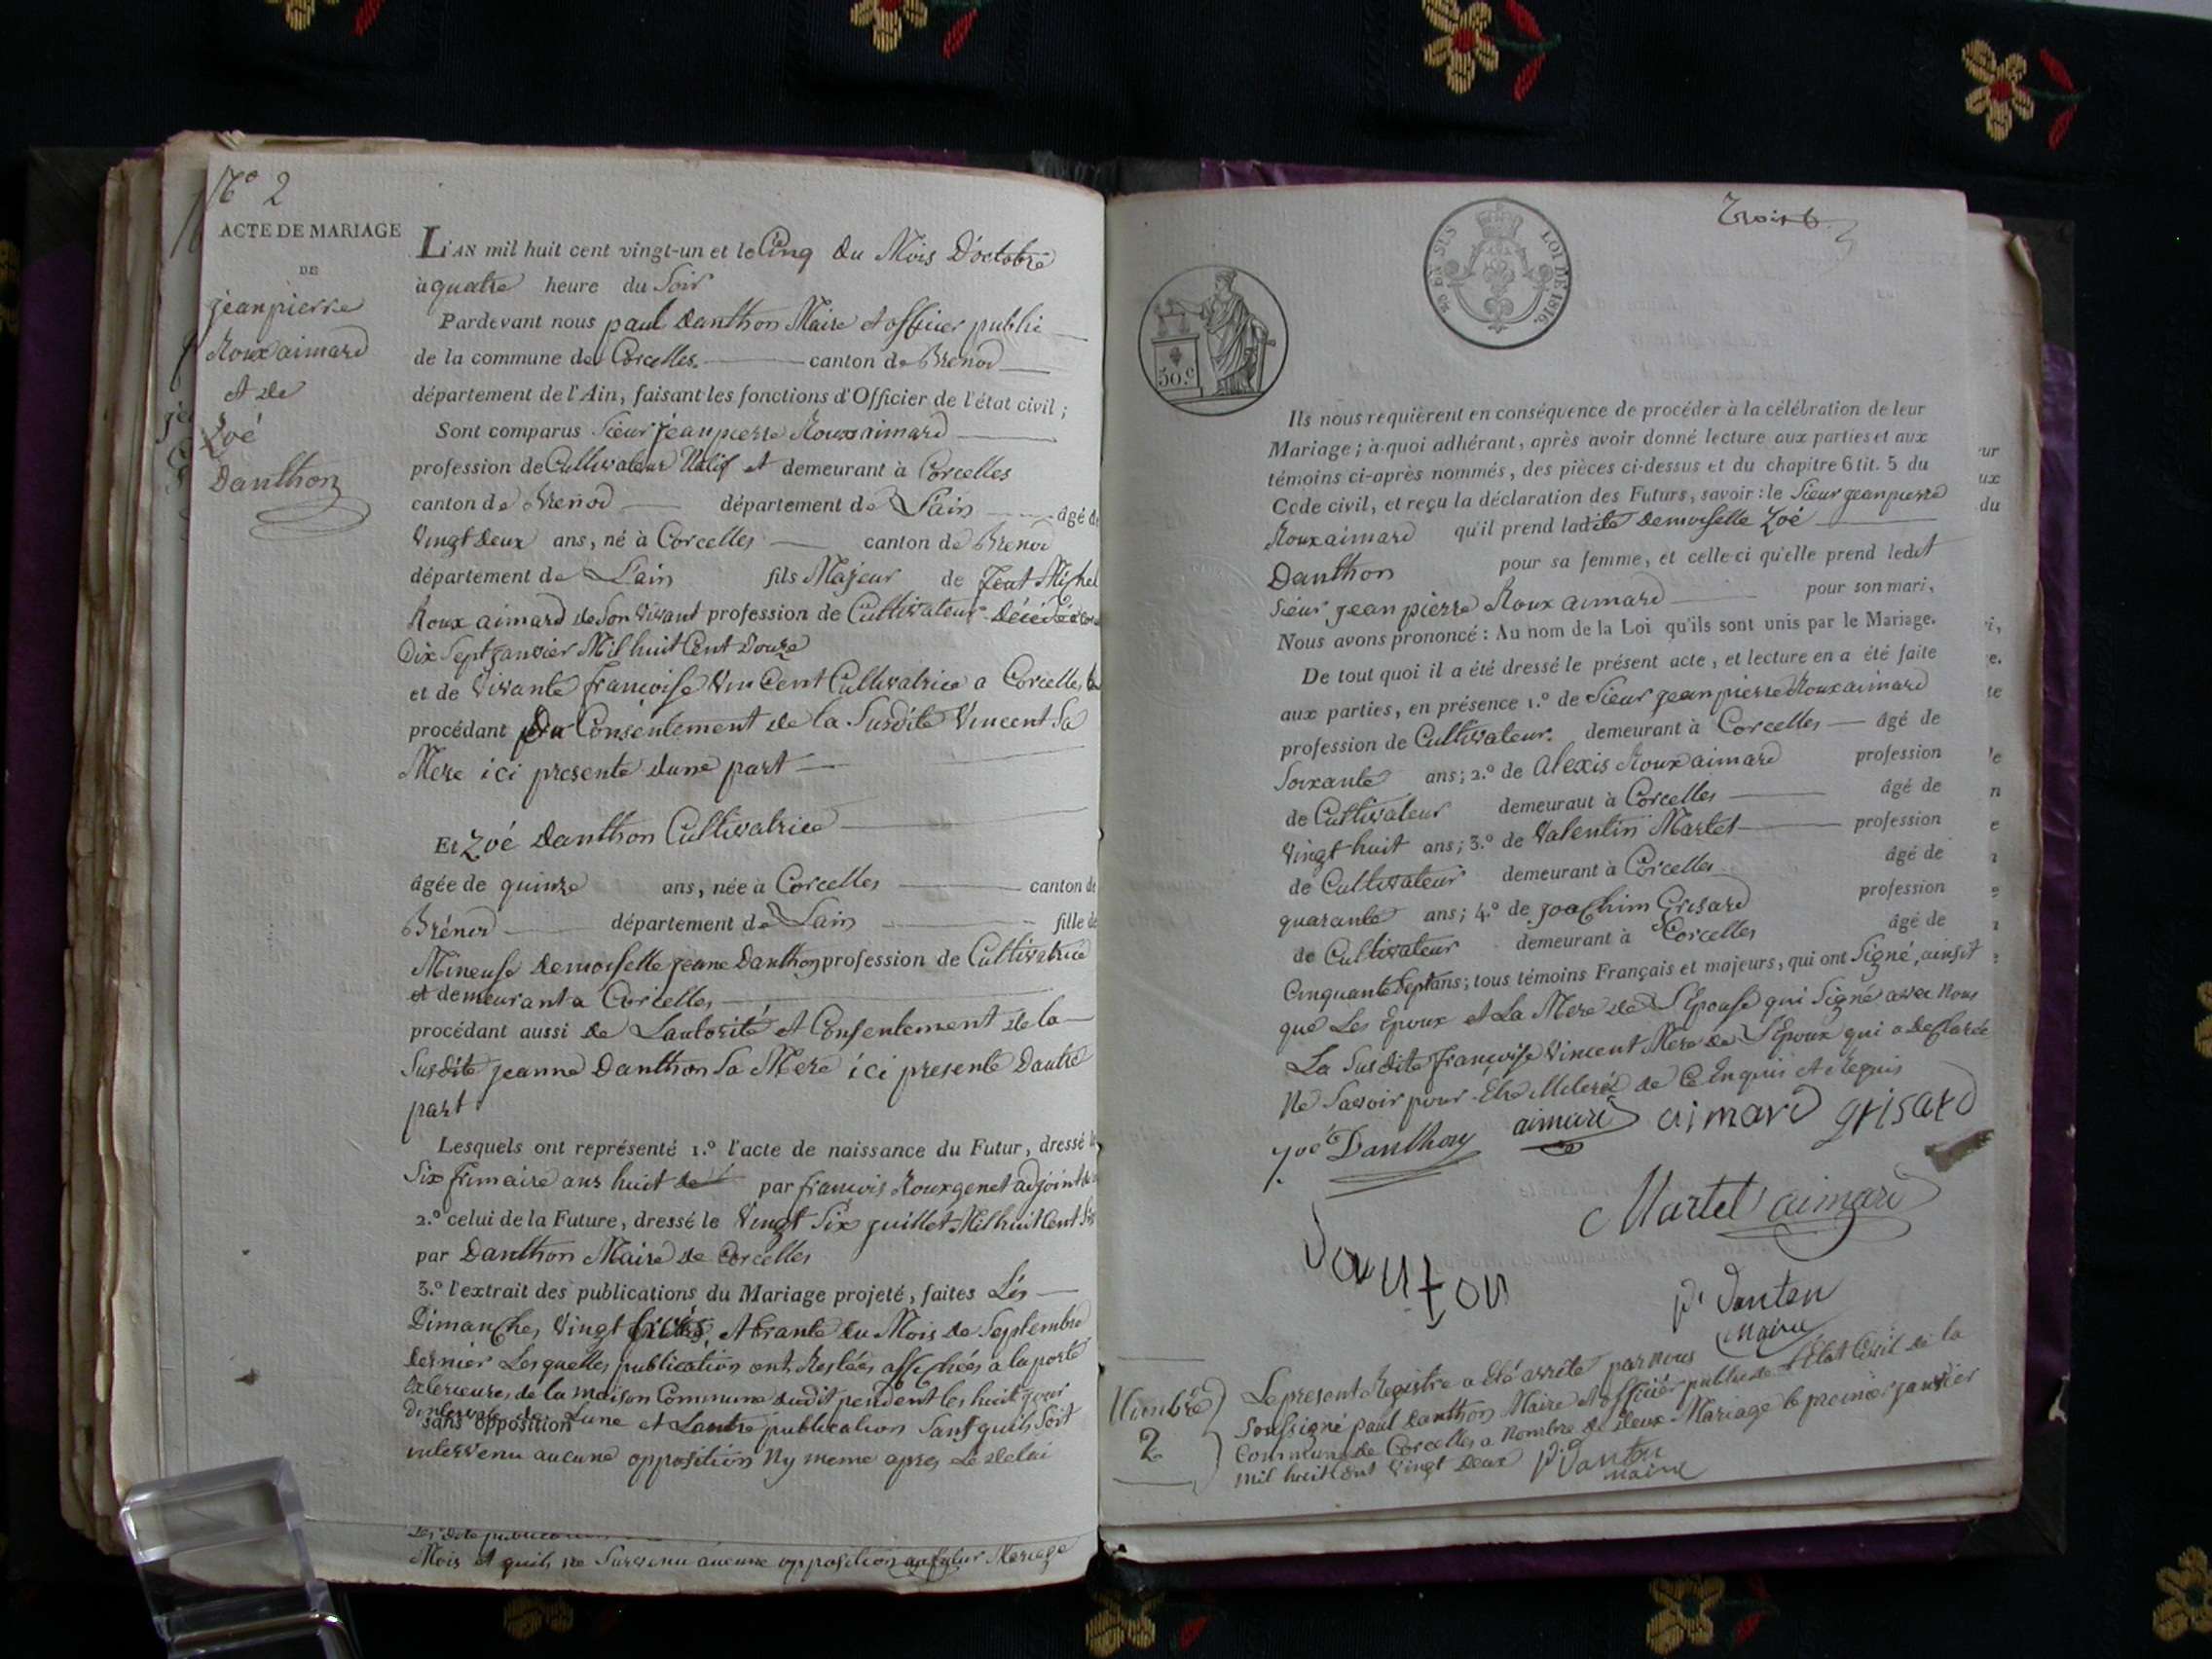 N° 2
ACTE DE MARIAGE
DE
jean pierre
Roux aimard
et de
Zoé
Danthon
L'AN mil huit cent vingt-un et le Cinq du Mois D'octobre
à quatre heure du Soir
Pardevant nous paul Danthon Maire et officier public
de la commune de Corcelles canton de Brenod
département de l'Ain, faisant les fonctions d'Officier de l'état civil ;
Sont comparus Sieur jean pierre Roux aimard
profession de Cultivateur Natif et demeurant à Corcelles
canton de Brenod département de L'ain âgé de
Vingt Deux ans, né à Corcelles canton de Brenod
département de L'ain fils Majeur de feu Michel
Roux aimard de Son Vivant profession de Cultivateur Décédé
Dix Sept janvier Mil huit Cent Douze
et de Vivante françoise Vincent Cultivatrice a Corcelles
procédant Du Consentement de la Susdite Vincent Sa
Mere ici presente dune part
Et Zoé Danthon Cultivatrice
âgée de quinze ans, née à Corcelles canton de
Brénod département de Lain fille de
Mineuse Demoiselle jeanne Danthon profession de Cultivatrice
et demeurant a Corcelles
procédant aussi de Lautorité et Consentement de la
Susdite jeanne Danthon Sa Mere ici presente Dautre
part
Lesquels ont représenté 1.° l'acte de naissance du Futur, dressé le
Six frimaire ans huit par francois Roux genet adjoint
2.° celui de la Future, dressé le Vingt Six juillet Mil huit Cent Six
par Danthon Maire de Corcelles
3.° l'extrait des publications du Mariage projeté, faites Les
Dimanches Vingt trois et trante du Mois de Septembre
dernier Lesquelles publication ont Restées affichées a la porte
Exterieures de la maison Commune dudit pendent les huit jour
Dintervale de Lune et Lautre publication Sans quils Soit
sans opposition
intervenu aucune opposition Ny meme apres Le delai
Mois et quils ne Survenu aucune opposition au futur Mariage
Trois 6. 3
30 EN SUS
LOI DE 1816.
50.c
Ils nous requièrent en conséquence de procéder à la célébration de leur
Mariage ; à quoi adhérant, après avoir donné lecture aux parties et aux
témoins ci-après nommés, des pièces ci-dessus et du chapitre 6 tit. 5 du
Code civil, et reçu la déclaration des Futurs, savoir : le Sieur jean pierre
Roux aimard qu'il prend ladite demoiselle Zoé
Danthon pour sa femme, et celle-ci qu'elle prend ledit
Sieur jean pierre Roux aimard pour son mari,
Nous avons prononcé : Au nom de la Loi qu'ils sont unis par le Mariage.
De tout quoi il a été dressé le présent acte, et lecture en a été faite
aux parties, en présence 1.° de Sieur jean pierre Roux aimard
profession de Cultivateur. demeurant à Corcelles âgé de
Soixante ans ; 2.° de alexis Roux aimard profession
de Cultivateur demeuraut à Corcelles âgé de
Vingt huit ans ; 3.° de Valentin Martel profession
de Cultivateur demeurant à Corcelles âgé de
quarante ans ; 4.° de joachim Grisard profession
de Cultivateur demeurant à Corcelles âgé de
Cinquante Sept ans ; tous témoins Français et majeurs, qui ont Signé, ainsit
que Les Epoux et La Mere de L'Epouse qui Signé avec Nous
La Susdite françoise Vincent Mere de L'Epoux qui a declarée
Ne Savoir pour Etre illeterée de Ce Enquis et Requis
zoé Danthon aimard aimard grisard
Martel aimard
Danton
p. Danton
Maire
Nombre
2
Le present Registre a été arrêté par nous
Soussigné paul Danthon Maire et officier public de L'Etat Civil de la
Commune de Corcelles a Nombre de deux Mariage le premier janvier
mil huit Cent Vingt Deux p. Danton
maire